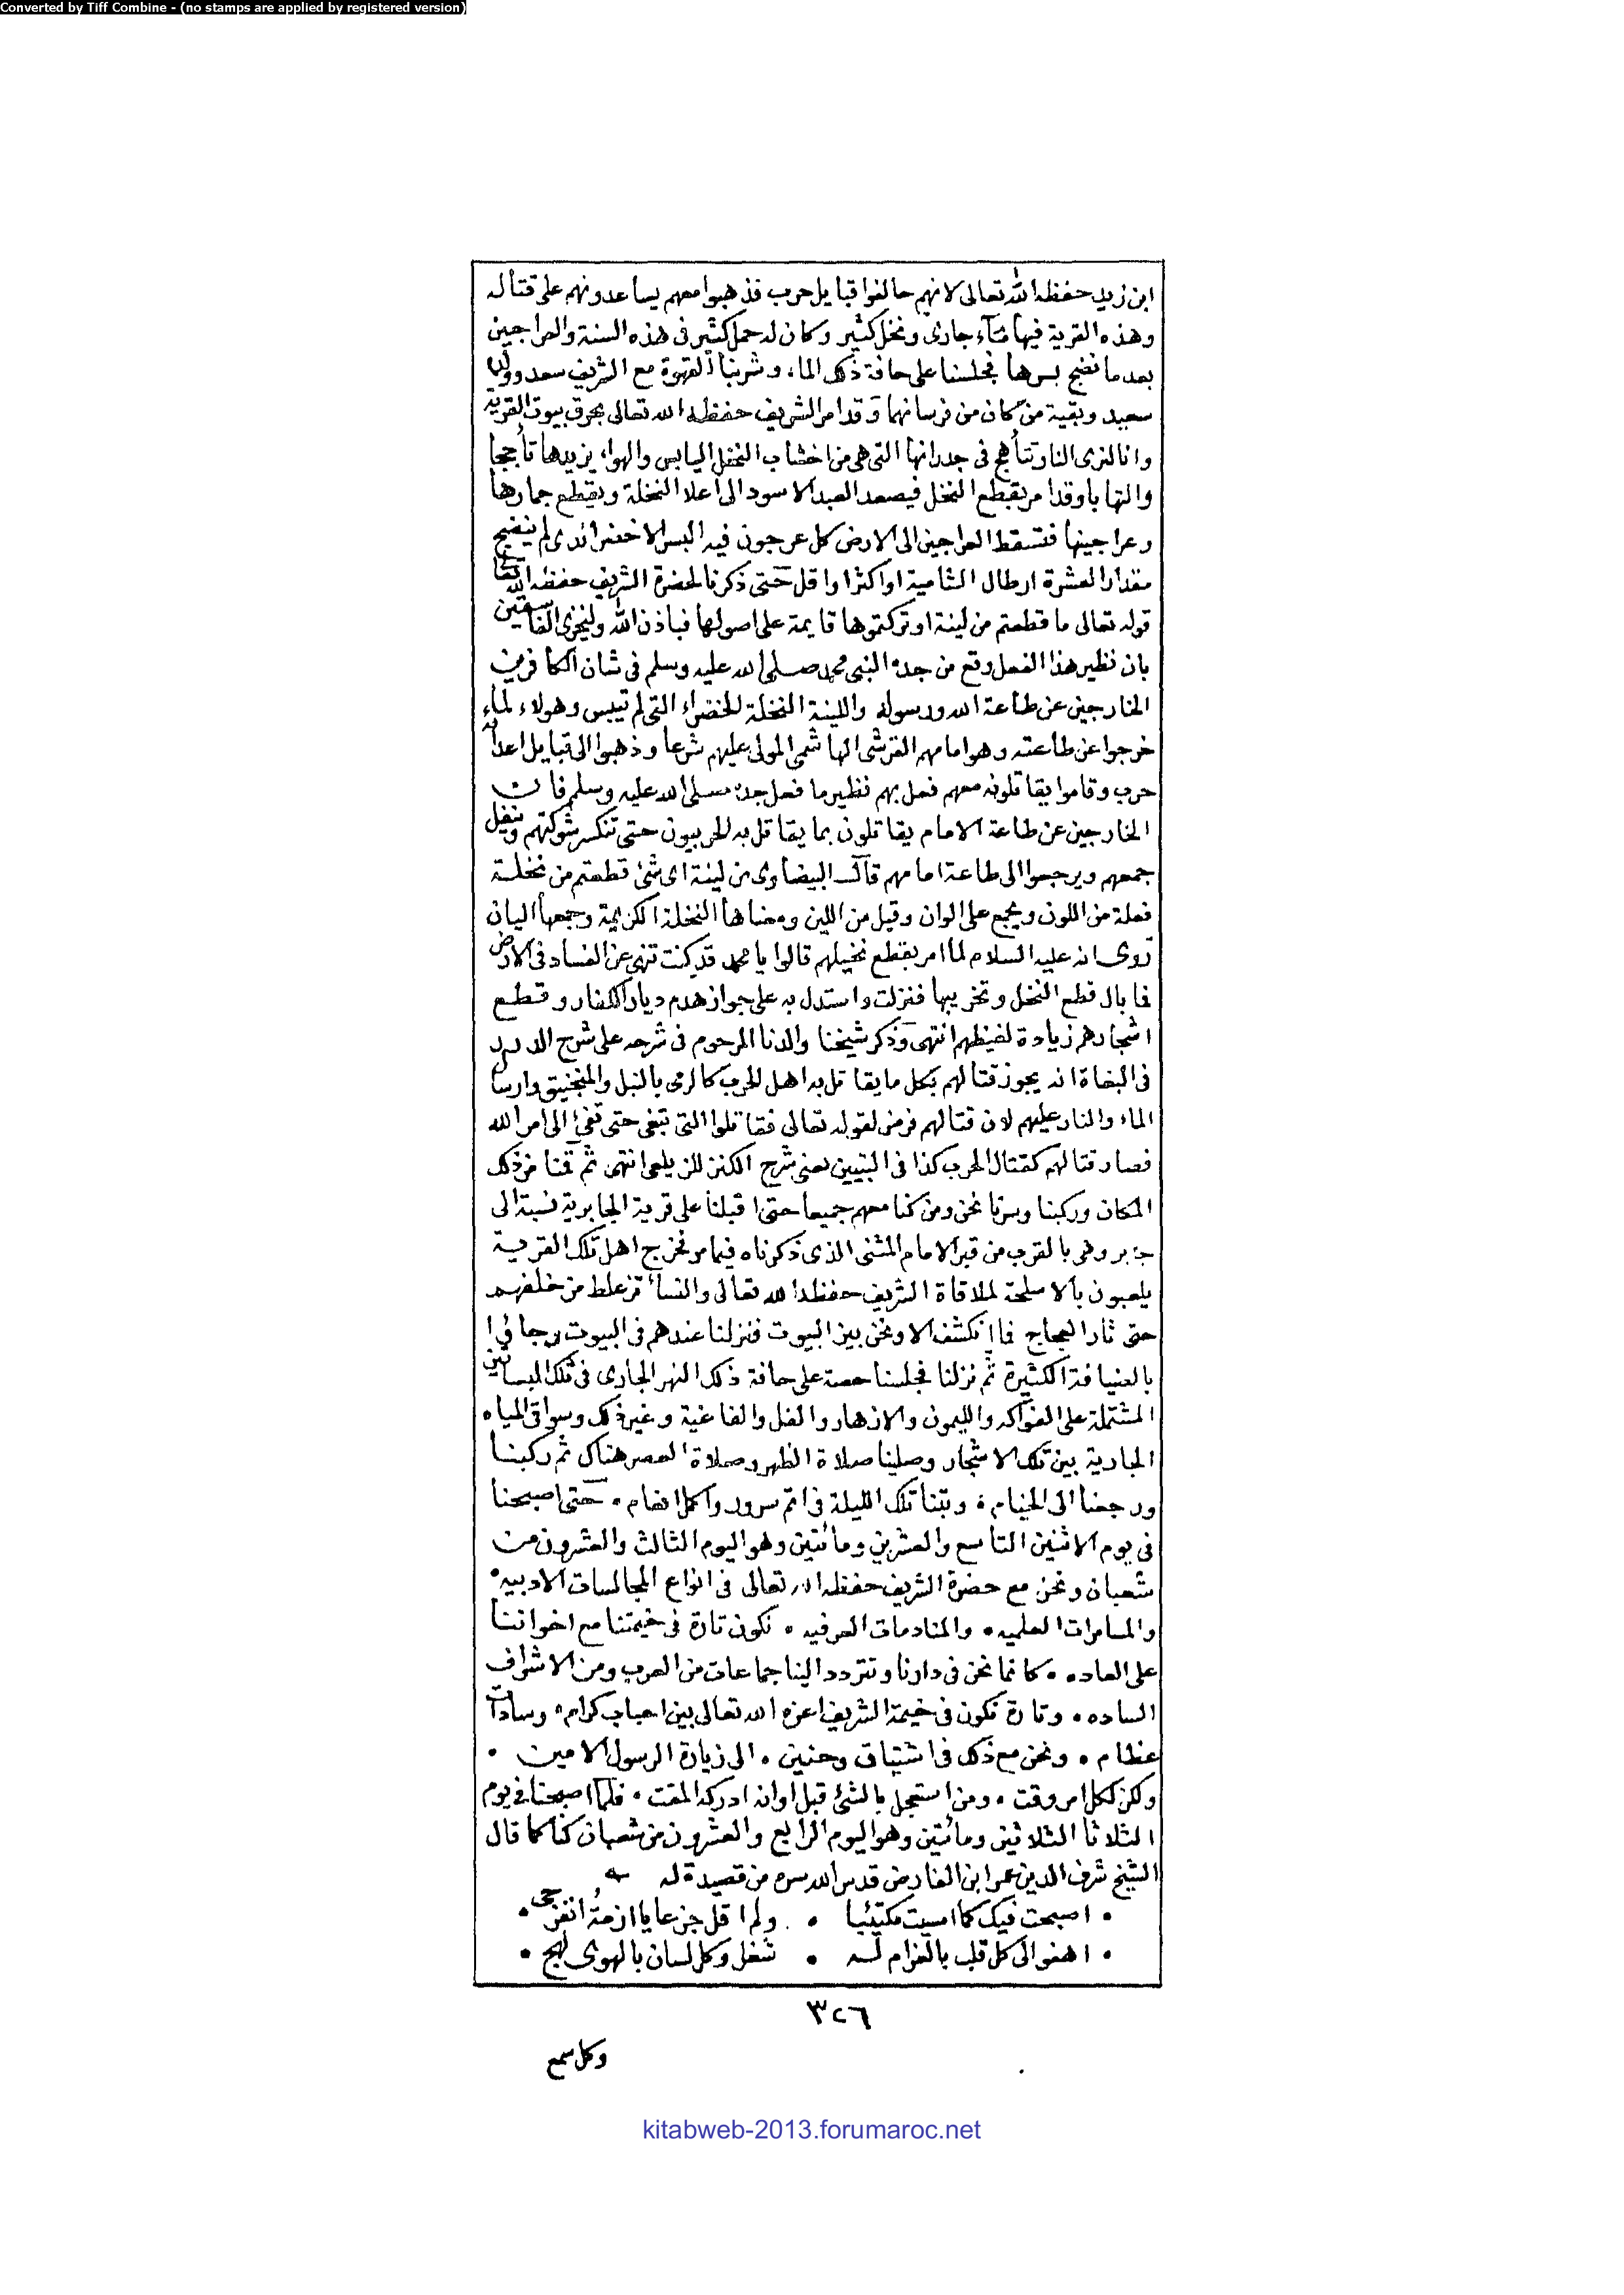 Converted by Tiff Combine - (no stamps are applied by registered version)
ابن زيد حفظه الله تعالى لانهم حالفوا قبايل حرب فذهبوا معهم يساعدونهم على قتاله
وهذه القرية فيها مآء جارى ونخل كثير وكان له حمل كثير فى هذه السنة والعراجين
بعد ما نضج بسرها فجلسنا على حافة ذلك الماء وشربنا القهوة مع الشريف سعد وولده
سعيد وبقية من كان من فرسانهما وقد امر الشريف حفظه الله تعالى بحرق بيوت القرية
وانا لنرى النار تتأجج فى جدرانها التى هى من اخشاب النخل اليابس والهواء يزيدها تأججا
والتهابا وقد امر بقطع النخل فيصعد العبد الاسود الى اعلا النخلة ويقطع جمارها
وعراجينها فتسقط العراجين الى الارض كل عرجون فيه البسر الاخضر الذى لم ينضج
مقدار العشرة ارطال الشامية او اكثر او اقل حتى ذكرنا لحضرة الشريف حفظه الله تعالى
قوله تعالى ما قطعتم من لينة او تركتموها قايمة على اصولها فباذن الله وليخزى الفاسقين
بان نظير هذا الفعل وقع من جده النبى محمد صلى الله عليه وسلم فى شان الكافرين
الخارجين عن طاعة الله ورسوله واللينة النخلة الخضراء التى لم تيبس وهولاء لماء
خرجوا عن طاعته وهو امامهم القرشى الهاشمى المولى عليهم شرعا وذهبوا الى قبايل اعدائه
حرب وقاموا يقاتلونه معهم فعل بهم نظير ما فعل جده صلى الله عليه وسلم فان
الخارجين عن طاعة الامام يقاتلون بما يقاتل به الحربيون حتى تنكسر شوكتهم وينفل
جمعهم ويرجعوا الى طاعة امامهم قال البيضاوى من لينة اى شئ قطعتم من نخلة
فعلة من اللون ويجمع على الوان وقيل من اللين ومعناها النخلة الكريمة وجمعها اليان
روى انه عليه السلام لما امر بقطع نخيلهم قالوا يا محمد قد كنت تنهى عن الفساد فى الارض
فما بال قطع النخل وتخريبها فنزلت واستدل به على جواز هدم ديار الكفار وقطع
اشجارهم زيادة لغيظهم انتهى وذكر شيخنا والدنا المرحوم فى شرحه على شرح الدرر
فى البغاة انه يجوز قتالهم بكل ما يقاتل به اهل الحرب كالرمى بالنبل والمنجنيق وارسال
الماء والنار عليهم لان قتالهم فرض لقوله تعالى فقاتلوا التى تبغى حتى تفئ الى امر الله
فصار قتالهم كقتال الحرب كذا فى التبيين يعنى شرح الكنز للزيلعى انتهى ثم قمنا من ذلك
المكان وركبنا وسرنا نحن ومن كنا معهم جميعا حتى اقبلنا على قرية الجابرية نسبة الى
جابر وهى بالقرب من قبر الامام المثنى الذى ذكرناه فيما مر فخرج اهل تلك القرية
يلعبون بالاسلحة لملاقاة الشريف حفظه الله تعالى والنساء تزغلط من خلفهم
حتى ثار العجاج فما انكشف الا ونحن بين البيوت فنزلنا عندهم فى البيوت وجاؤا
بالضيافة الكثيرة ثم نزلنا فجلسنا حصة على حافة ذلك النهر الجارى فى تلك البساتين
المشتملة على الفواكه والليمون والازهار والفل والفاغية وغير ذلك وسواقى المياه
الجارية بين تلك الاشجار وصلينا صلاة الظهر وصلاة العصر هناك ثم ركبنا
ورجعنا الى الخيام، وبتنا تلك الليلة فى اتم سرور واكمل انعام • حتى اصبحنا
فى يوم الاثنين التاسع والعشرين ومائتين وهو اليوم الثالث والعشرون من
شعبان ونحن مع حضرة الشريف حفظه الله تعالى فى انواع المجالسات الادبيه •
والمسامرات العلميه • والمنادمات العرفيه • نكون تارة فى خيمتنا مع اخواننا
على العاده • كانما نحن فى دارنا وتتردد الينا جماعات من العرب ومن الاشراف
الساده • وتارة نكون فى خيمة الشريف اعزه الله تعالى بين احباب كرام • وسادات
عظام • ونحن مع ذلك فى اشتياق وحنين • الى زيارة الرسول الامين •
ولكن لكل امر وقت • ومن استعجل بالشئ قبل اوانه ادركه المقت • فلما اصبحنا فى يوم
الثلاثا الثلاثين ومائتين وهو اليوم الرابع والعشرون من شعبان كنا كما قال
الشيخ شرف الدين عمر ابن الفارض قدس الله سره من قصيدة له
• اصبحت فيك كما امسيت مكتئبا • ولم اقل جزعا يا ازمة انفرجى •
• اهفو الى كل قلب بالغرام له • شغل وكل لسان بالهوى لهج •
٣٢٦
وكل سمع
kitabweb-2013.forumaroc.net